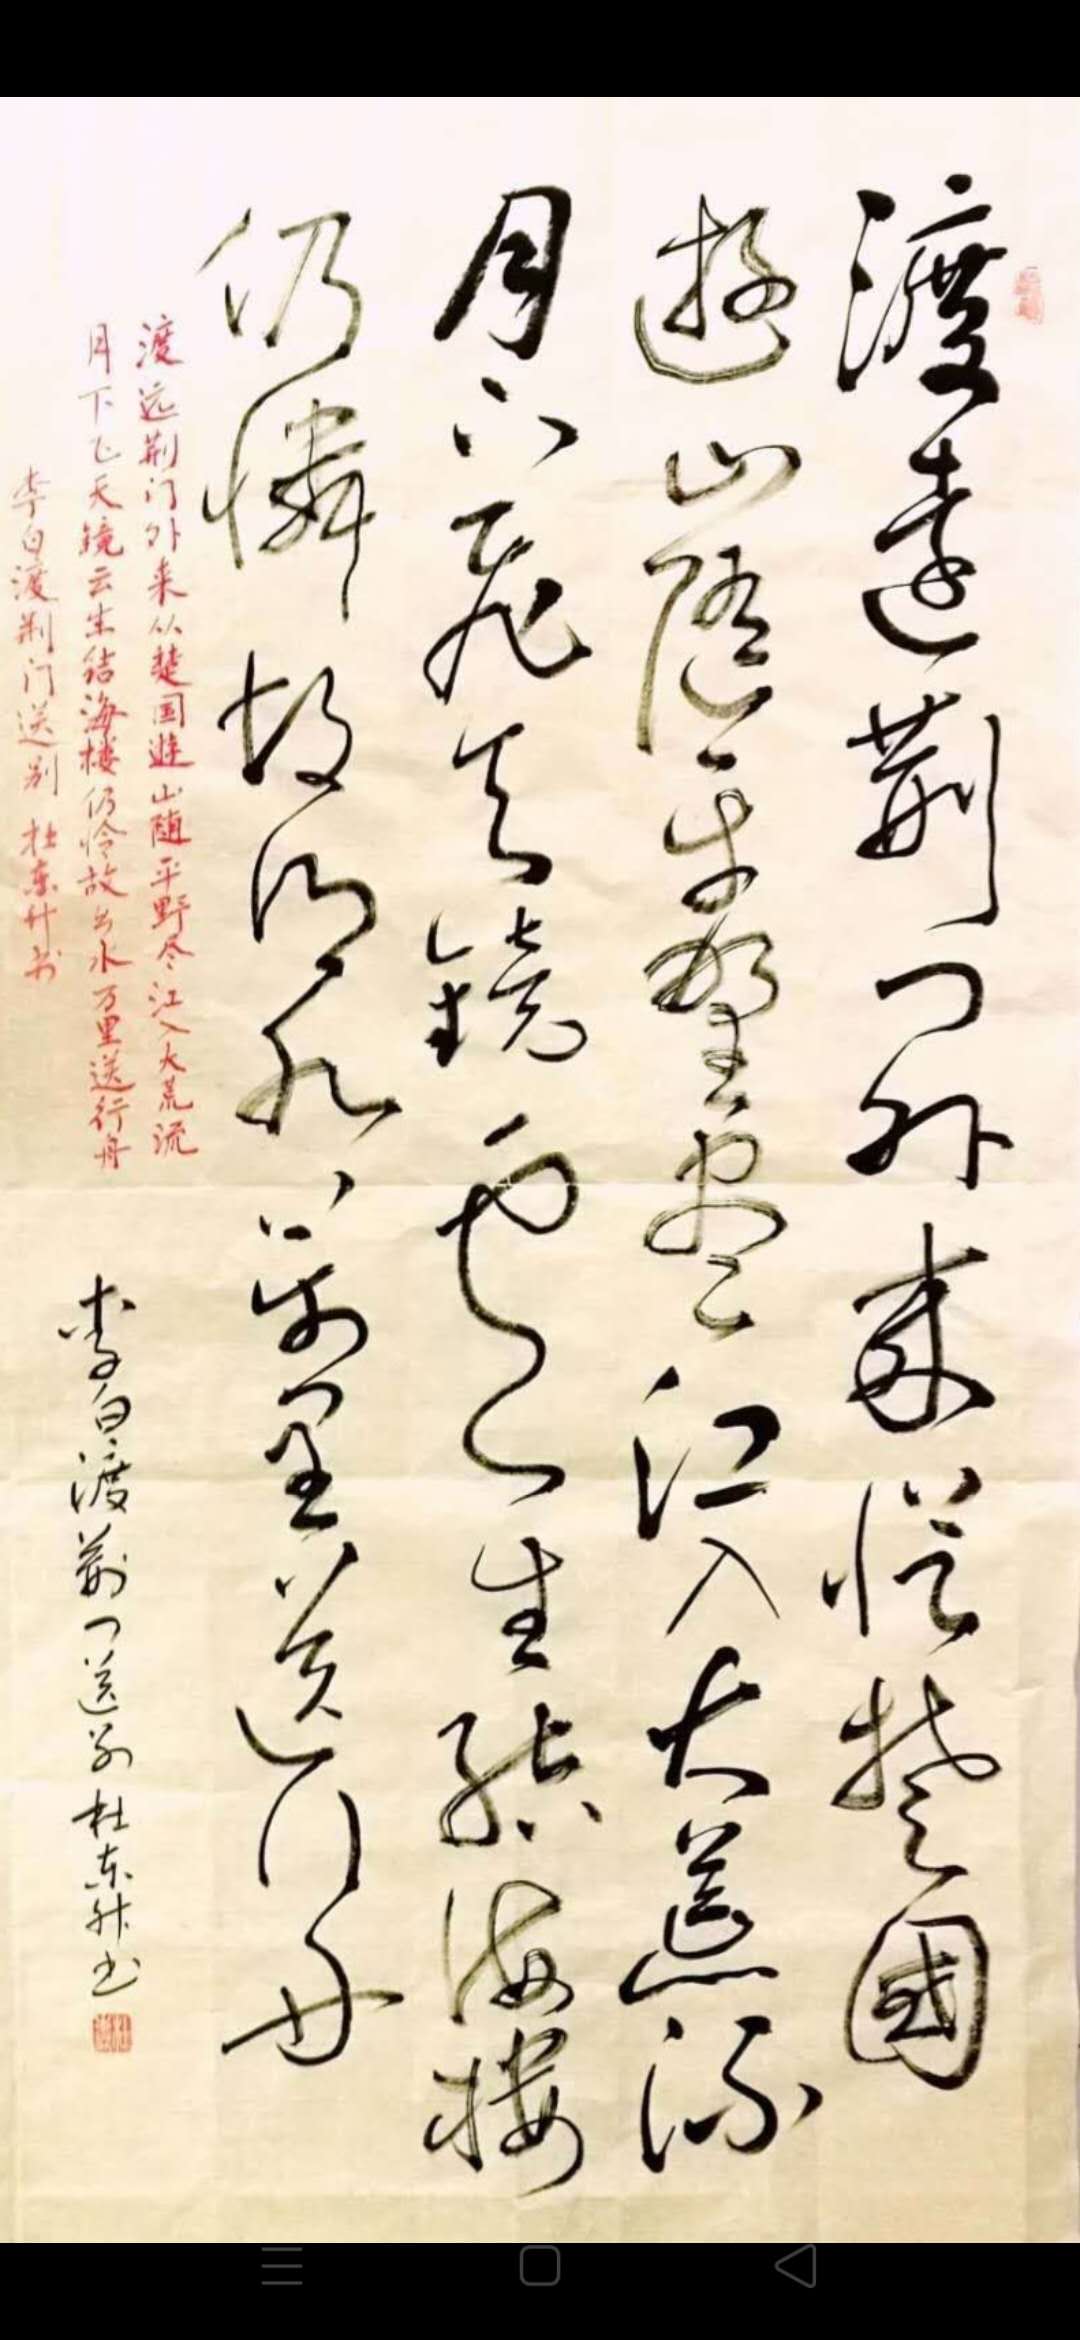 渡遠荊門外來從楚國
遊山隨平野盡江入大荒流
月下飛天鏡雲生結海樓
仍憐故鄉水萬里送行舟
渡远荆门外来从楚国遊山随平野尽江入大荒流
月下飞天镜云生结海楼仍怜故乡水万里送行舟
李白渡荆门送别 杜东升书
李白渡荊門送别杜东升书